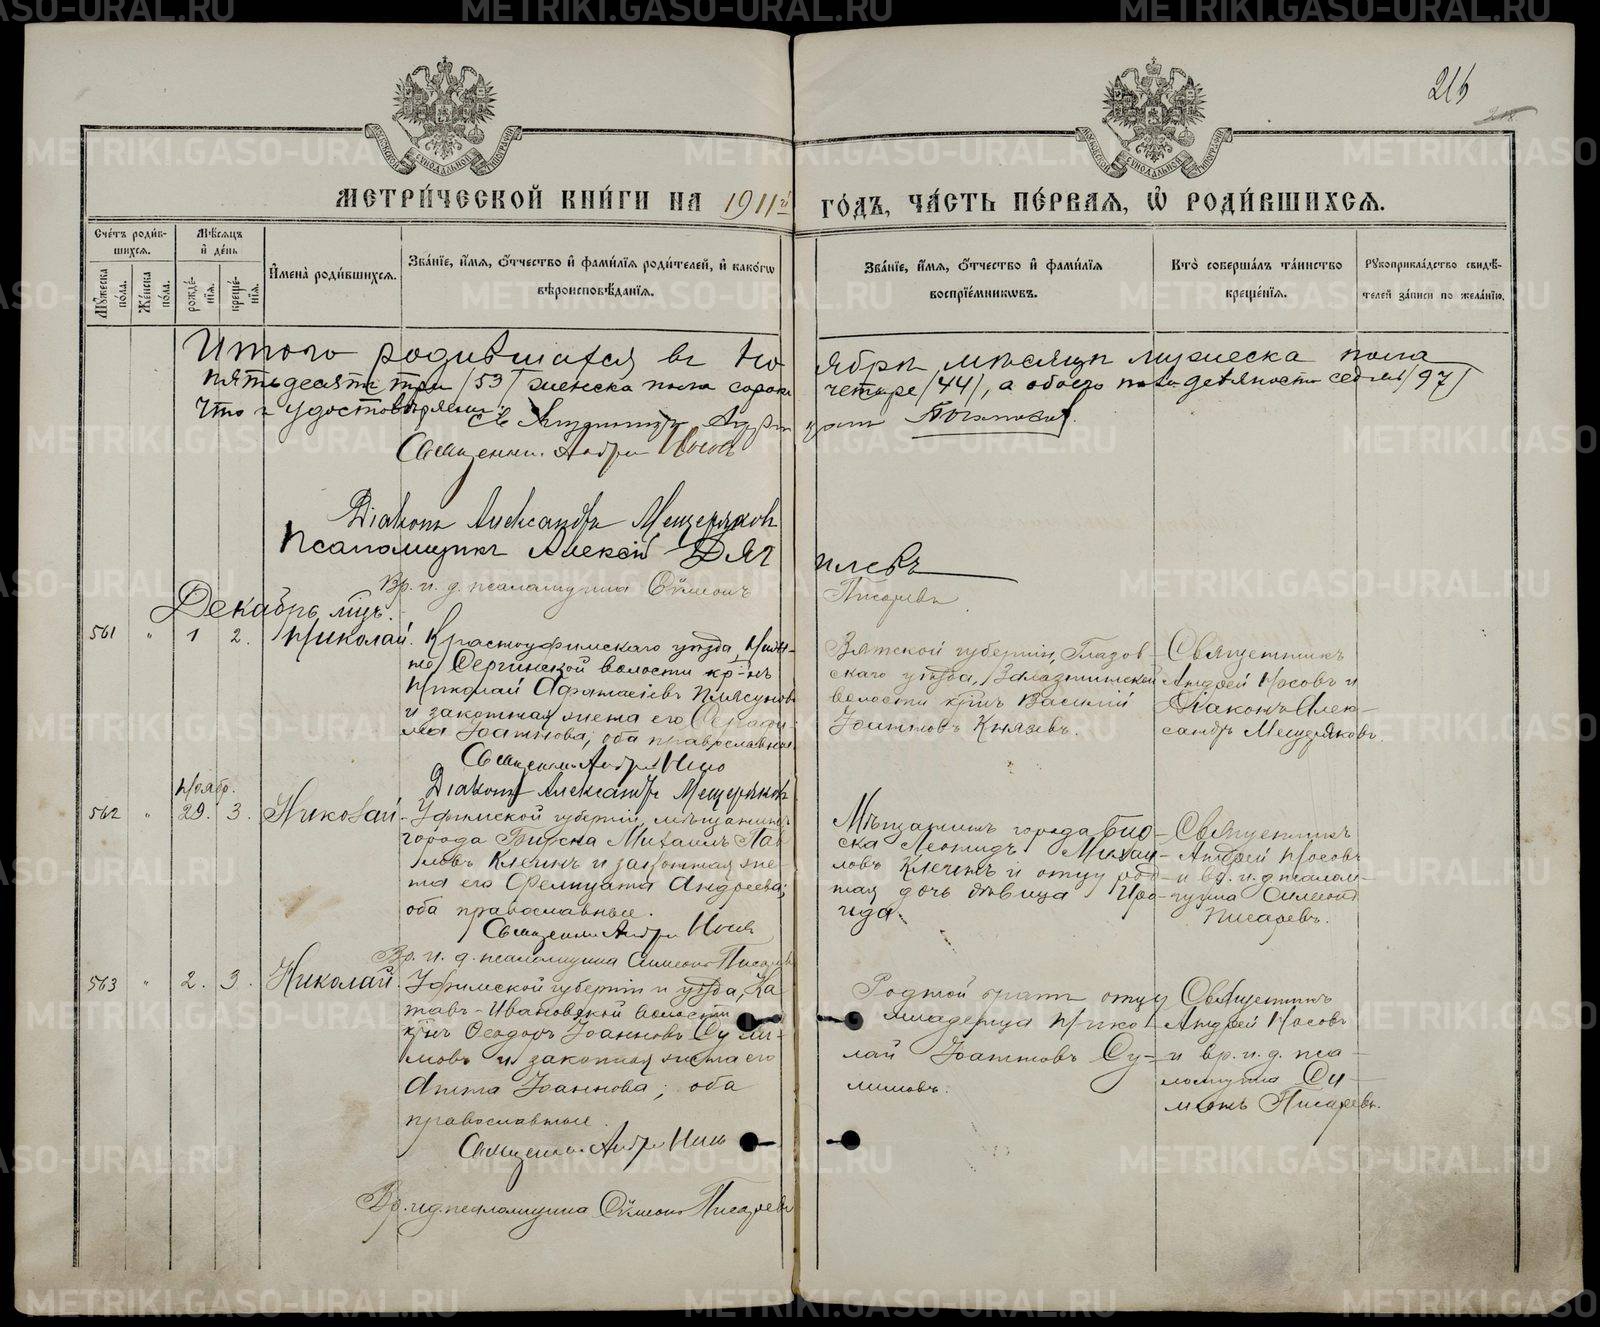 216
МЕТРИ́ЧЕСКОЙ КНИ́ГИ НА 1911й ГО́ДЪ, ЧА́СТЬ ПЕ́РВАЯ, Ѡ РОДИ́ВШИХСЯ.
Сче́тъ роди́вшихся.
Мѣ́сяцъ и де́нь
Му́жеска по́ла.
Же́нска по́ла.
рожде́нія.
креще́нія.
Имена̀ роди́вшихся.
Зва́ніе, и́мя, о́тчество и фами́лія роди́телей, и како́гѡ
вѣроисповѣ́данія.
Зва́ніе, и́мя, о́тчество и фами́лія
воспріе́мникѡвъ.
Кто̀ соверша́лъ та́инство
креще́нія.
Рукоприкла́дство свидѣ́-
телей за́писи по жела́нію.
Итого родившихся въ Но ябрѣ мѣсяцѣ мужеска пола
пятьдесятъ три /53/ женска пола сорокъ четыре /44/, а обоего пола девяносто семь /97/
Что и удостовѣряемъ:
Священникъ Андрей Носовъ
Діаконъ Александръ Мещеряковъ
Псаломщикъ Алексій Дяг илевъ
Вр. и. д. псаломщика Сѵмеонъ Писаревъ.
Декабрь мцъ.
561 " 1 2. Николай.
Красноуфимскаго уѣзда, Нижне-
Сергинской волости кр-нъ
Николай Афанасіевъ Плясуновъ
и законная жена его Серафи-
ма Іоаннова; оба православные.
Священникъ Андрей Носовъ
Діаконъ Александръ Мещеряковъ
Вятской губерніи, Глазов-
скаго уѣзда, Залазнинской
волости кр-нъ Василій
Іоанновъ Князевъ.
Священникъ
Андрей Носовъ и
Діаконъ Алек-
сандръ Мещеряковъ.
Ноябр.
562 " 29. 3. Николай
Уфимской губерніи, мѣщанинъ
города Бирска Михаилъ Пав-
ловъ и законная же-
на его Фелицата Андреева;
оба православные.
Священникъ Андрей Носовъ
Вр. и. д. псаломщика Симеонъ Писаревъ
Мѣщанинъ города Бир-
ска Леонидъ Михаи-
ловъ и отцу род-
ная дочь дѣвица Ира-
ида.
Священникъ
Андрей Носовъ
и вр. и. д. псалом-
щика Симеонъ
Писаревъ.
563 " 2. 3. Николай.
Уфимской губерніи и уѣзда, Ка-
тавъ-Ивановской волости
кр-нъ Ѳеодоръ Іоанновъ Сули-
мовъ и законная жена его
Анна Іоаннова; оба
православные.
Священникъ Андрей Носовъ
Вр. и д. псаломщика Сѵмеонъ Писаревъ
Родной братъ отцу
младенца Нико-
лай Іоанновъ Су-
лимовъ.
Священникъ
Андрей Носовъ
и вр. и. д. пса-
ломщика Си-
меонъ Писаревъ.
METRIKI.GASO-URAL.RU